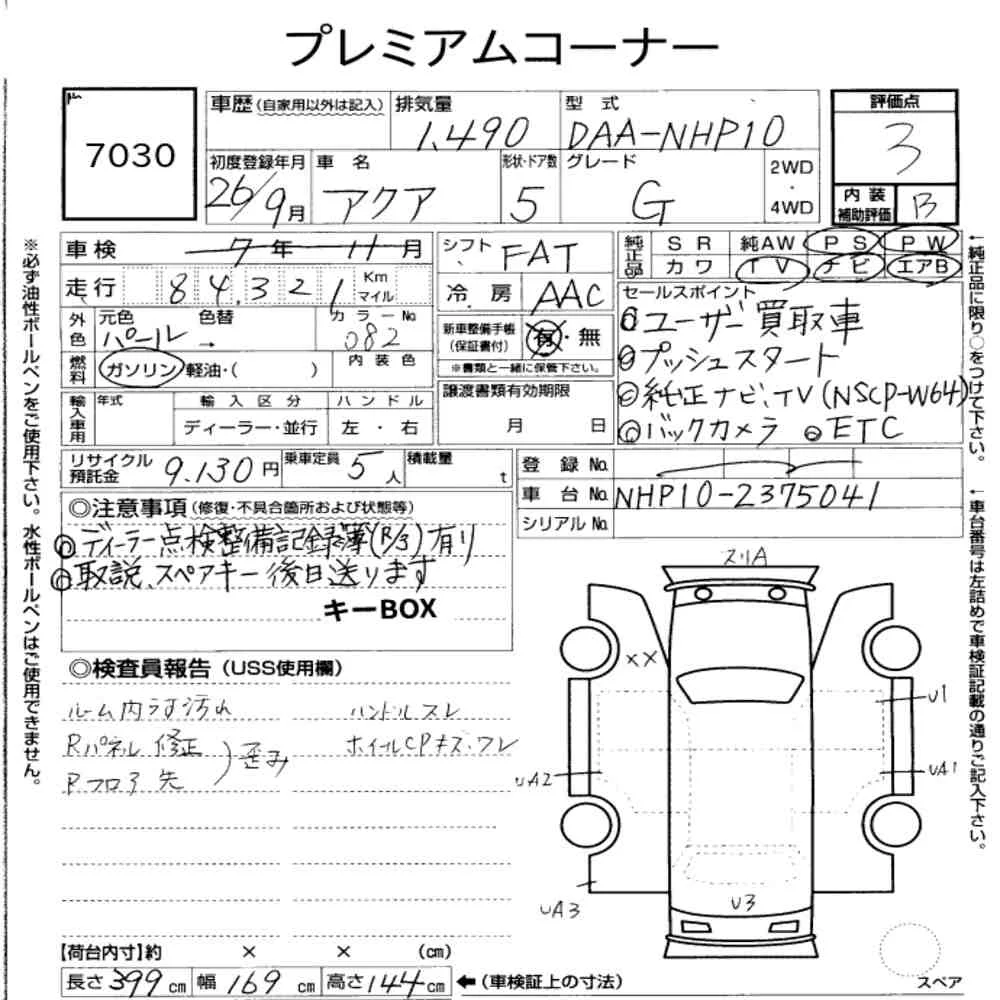 プレミアムコーナー
7030
車歴(自家用以外は記入)
排気量
1,490
型式
DAA-NHP10
評価点
3
初度登録年月
26/9月
車名
アクア
形状・ドア数
5
グレード
G
2WD
・
4WD
内装
補助評価
B
車検 7年 11月
走行 84,321 Km
マイル
外色
元色 色替
パール →
カラーNo.
082
燃料
ガソリン 軽油・( )
内装色
輸入車用
年式
輸入区分
ディーラー・並行
ハンドル
左・右
リサイクル
預託金
9.130円
乗車定員
5人
積載量
t
シフト
FAT
冷房
AAC
新車整備手帳
(保証書付)
有・無
※書類と一緒に保管下さい。
譲渡書類有効期限
月 日
純正品
SR 純AW PS PW
カワ TV ナビ エアB
セールスポイント
◎ユーザー買取車
◎プッシュスタート
◎純正ナビ、TV(NSCP-W64)
◎バックカメラ ◎ETC
登録No.
車台No. NHP10-2375041
シリアルNo.
◎注意事項(修復・不具合箇所および状態等)
◎ディーラー点検整備記録簿(R/3)有り
◎取説、スペアキー後日送ります
キーBOX
◎検査員報告(USS使用欄)
ルーム内うす汚れ ハンドルスレ
Rパネル修正 ホイールCPキズ・ワレ
Rフロア先 歪み
ヌリA
××
U1
UA2
UA1
UA3
U3
スペア
【荷台内寸】約 × × (cm)
長さ399cm 幅169cm 高さ144cm ←(車検証上の寸法)
※必ず油性ボールペンをご使用下さい。水性ボールペンはご使用できません。
←純正品に限り○をつけて下さい。
←車台番号は左詰めで車検証記載の通りご記入下さい。